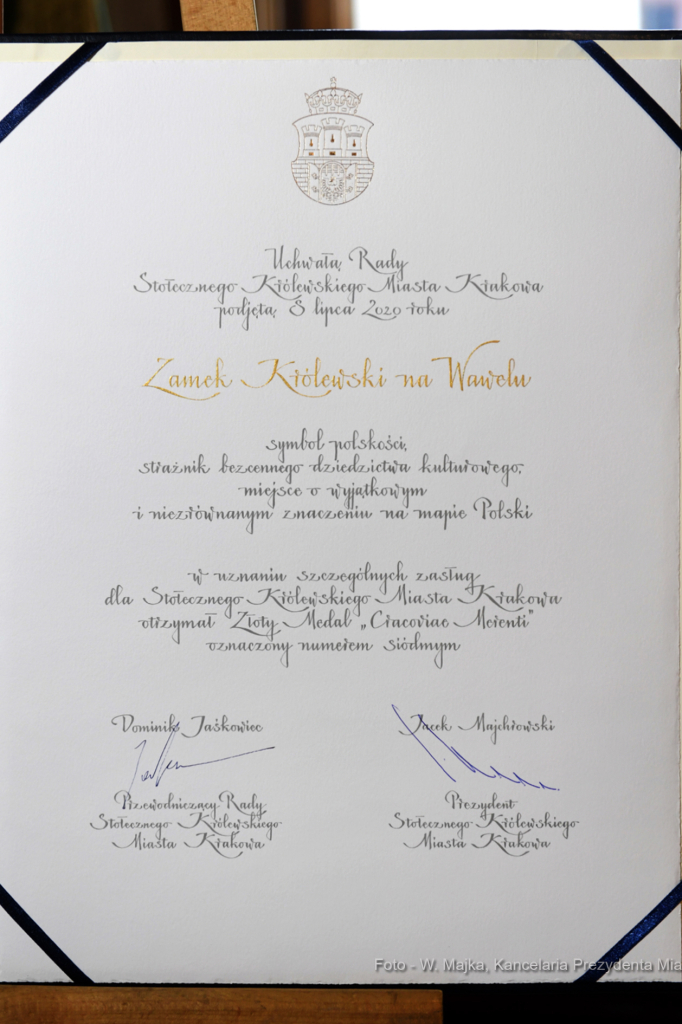 Uchwałą Rady
Stołecznego Królewskiego Miasta Krakowa
podjętą 8 lipca 2020 roku
Zamek Królewski na Wawelu
symbol polskości,
strażnik bezcennego dziedzictwa kulturowego,
miejsce o wyjątkowym
i niezrównanym znaczeniu na mapie Polski
w uznaniu szczególnych zasług
dla Stołecznego Królewskiego Miasta Krakowa
otrzymał Złoty Medal „Cracoviae Merenti"
oznaczony numerem siódmym
Dominik Jaśkowiec
Przewodniczący Rady
Stołecznego Królewskiego
Miasta Krakowa
Jacek Majchrowski
Prezydent
Stołecznego Królewskiego
Miasta Krakowa
Foto - W. Majka, Kancelaria Prezydenta Mia